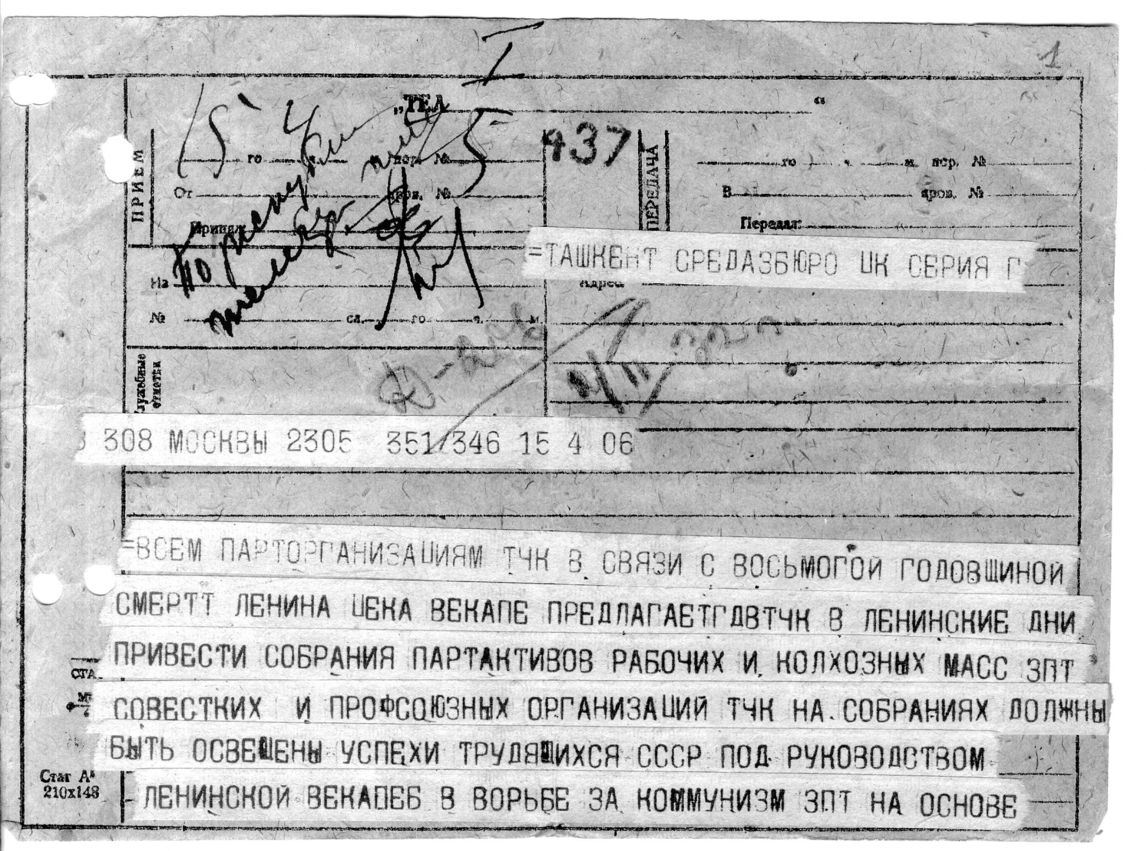 I
1
„ТЕЛ “
15 4 5
437
ПРИЕМ
го ч. пер. №
От пров. №
Принял:
ПЕРЕДАЧА
го ч. м. пер. №
В пров. №
Передал:
=ТАШКЕНТ СРЕДАЗБЮРО ЦК СЕРИЯ Г
Из
Адрес:
№ сл. го ч. м.
Служебные отметки
В 308 МОСКВЫ 2305 351/346 15 4 06
=ВСЕМ ПАРТОРГАНИЗАЦИЯМ ТЧК В СВЯЗИ С ВОСЬМОГОЙ ГОДОВЩИНОЙ
СМЕРТТ ЛЕНИНА ЦЕКА ВЕКАПЕ ПРЕДЛАГАЕТГДВТЧК В ЛЕНИНСКИЕ ДНИ
ПРИВЕСТИ СОБРАНИЯ ПАРТАКТИВОВ РАБОЧИХ И КОЛХОЗНЫХ МАСС ЗПТ
СОВЕСТКИХ И ПРОФСОЮЗНЫХ ОРГАНИЗАЦИЙ ТЧК НА СОБРАНИЯХ ДОЛЖНЫ
БЫТЬ ОСВЕЩЕНЫ УСПЕХИ ТРУДЯЩИХСЯ СССР ПОД РУКОВОДСТВОМ
ЛЕНИНСКОЙ ВЕКАПЕБ В ВОРЬБЕ ЗА КОММУНИЗМ ЗПТ НА ОСНОВЕ
Стат А⁵
210х148